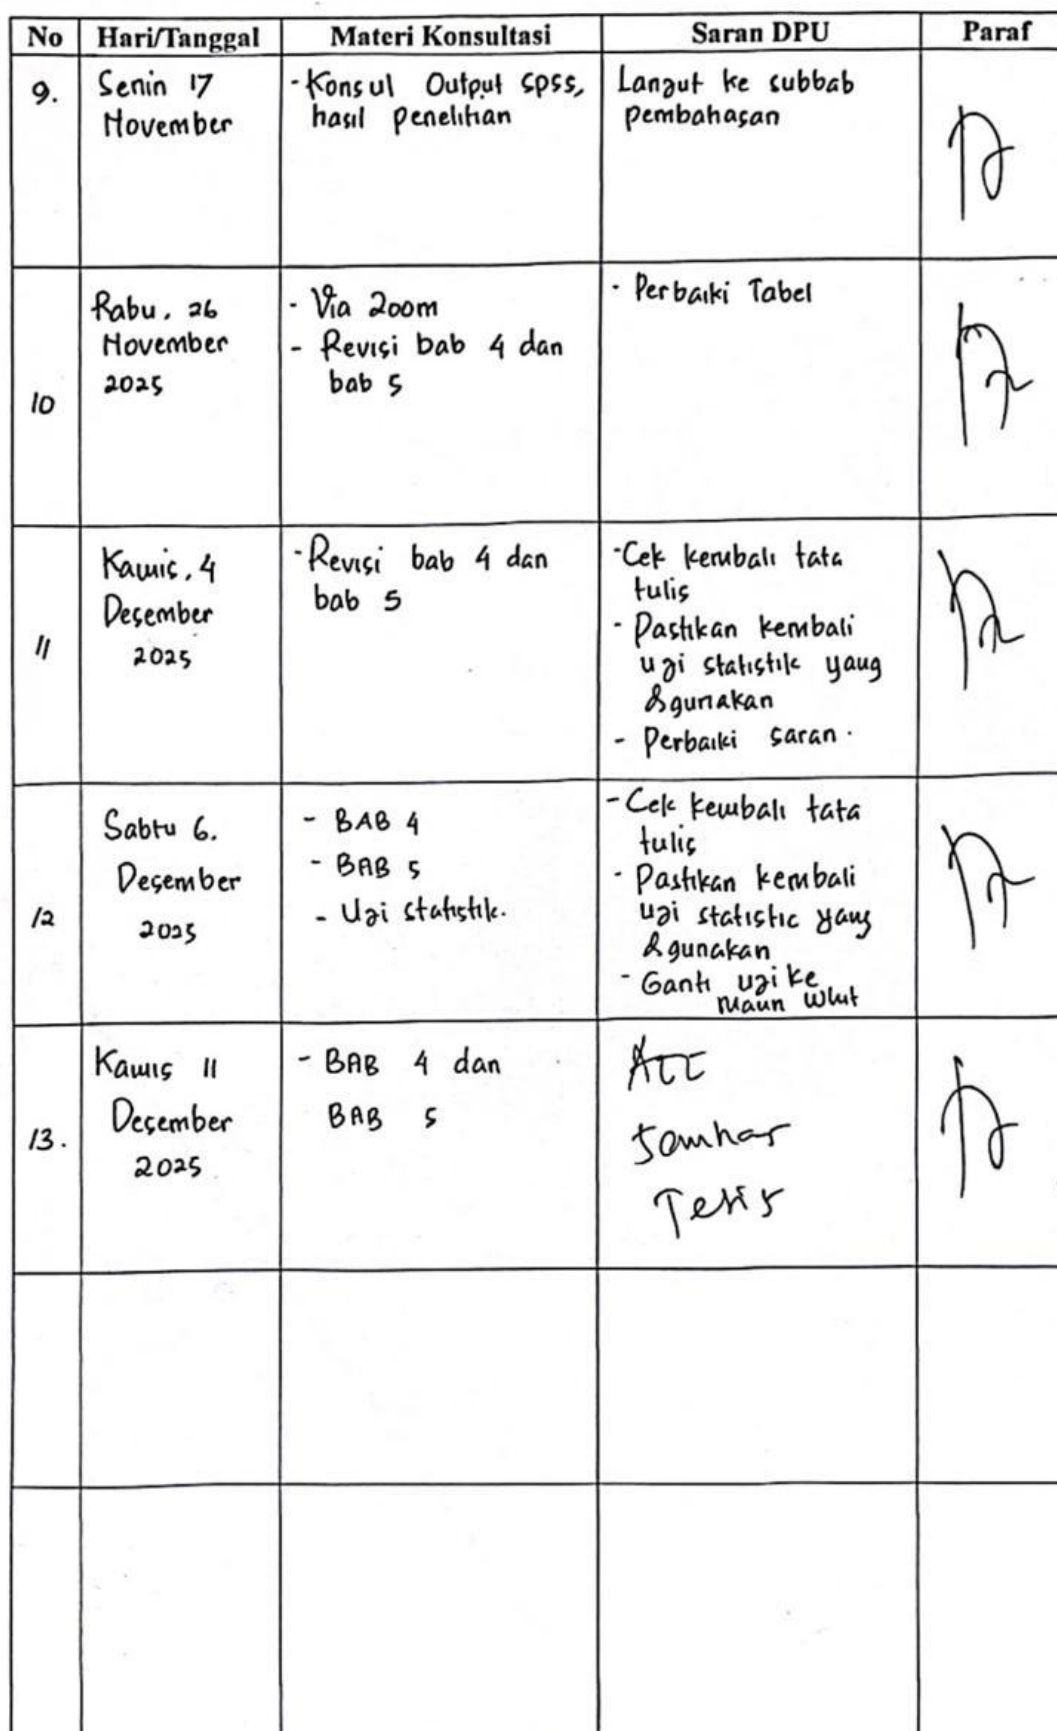 No Hari/Tanggal Materi Konsultasi Saran DPU Paraf
9.
Senin 17
November
- Konsul Output SPSS,
hasil penelitian
Lanjut ke subbab
pembahasan
10
Rabu, 26
November
2025
- Via Zoom
- Revisi bab 4 dan
bab 5
- Perbaiki Tabel
11
Kamis, 4
Desember
2025
- Revisi bab 4 dan
bab 5
- Cek kembali tata
tulis
- Pastikan kembali
uji statistik yang
digunakan
- Perbaiki saran.
12
Sabtu 6.
Desember
2025
- BAB 4
- BAB 5
- Uji statistik.
- Cek kembali tata
tulis
- Pastikan kembali
uji statistic yang
digunakan
- Ganti uji ke
Maun Whit
13.
Kamis 11
Desember
2025
- BAB 4 dan
BAB 5
ACC
Semhas
Tesis